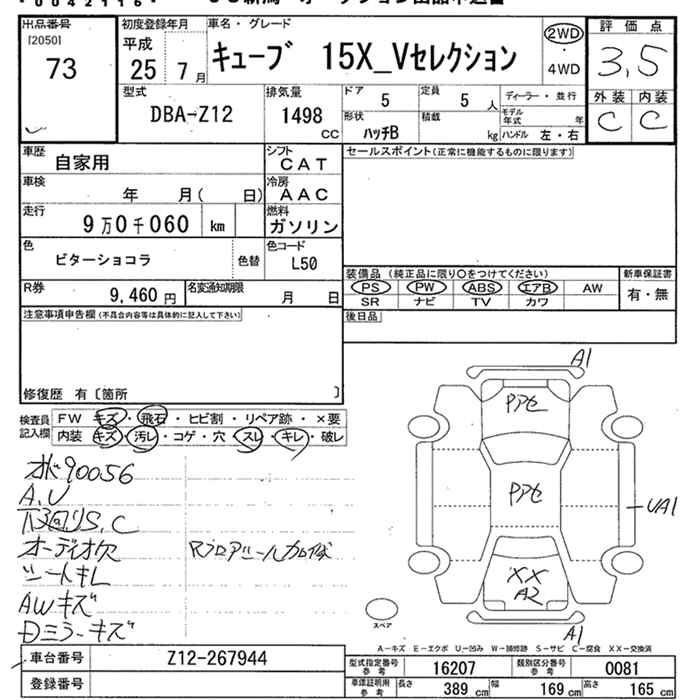 出品番号 [2050] 73
初度登録年月 平成 25 年 7 月
車名・グレード キューブ 15X_Vセレクション
2WD ・ 4WD
評価点 3,5
外装 C 内装 C
型式 DBA-Z12
排気量 1498 CC
ドア 5
定員 5 人
形状 ハッチB
積載 kg
ディーラー・並行
モデル年式 年
ハンドル 左・右
車歴 自家用
シフト CAT
セールスポイント(正常に機能するものに限ります)
車検 年 月( 日)
冷房 AAC
走行 9万0千060 km
燃料 ガソリン
色 ビターショコラ 色替
色コード L50
R券 9,460 円
名変通知期限 月 日
装備品 (純正品に限り○をつけてください)
PS PW ABS エアB AW
SR ナビ TV カワ
新車保証書 有・無
注意事項申告欄 (不具合内容等は具体的に記入して下さい)
後日品
修復歴 有〔箇所 〕
検査員記入欄
FW キズ・飛石・ヒビ割・リペア跡・×要
内装 キズ・汚レ・コゲ・穴・スレ・キレ・破レ
90056
A.U
下廻りS.C
オーディオ欠
シートキレ
AWキズ
Dミラーキズ
A1
UA1
XX
A2
A1
スペア
A-キズ E-エクボ U-凹み W-補修跡 S-サビ C-腐食 XX-交換済
車台番号 Z12-267944
登録番号
型式指定番号 参考 16207
類別区分番号 参考 0081
車検証明用 参考 長さ 389 cm 幅 169 cm 高さ 165 cm